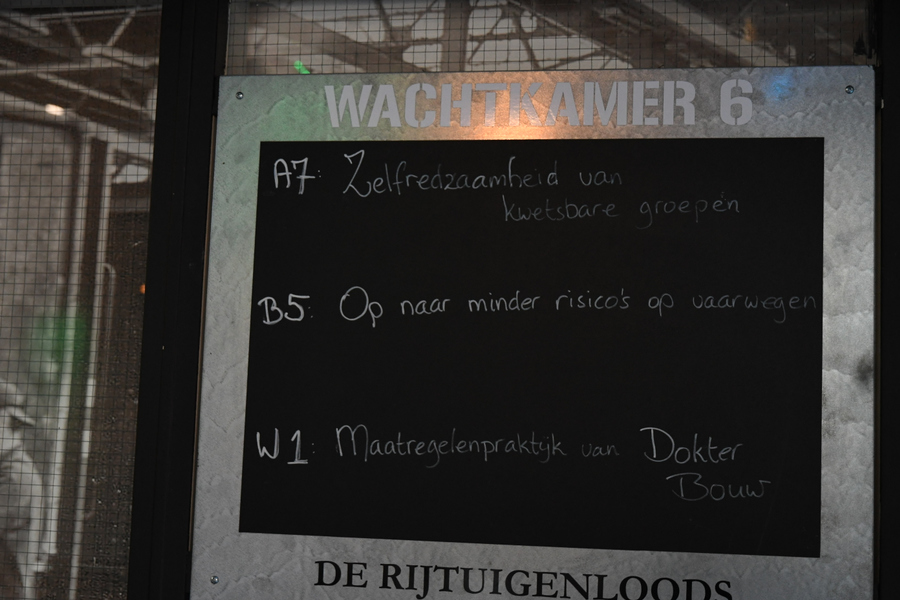 WACHTKAMER 6
A7: Zelfredzaamheid van
kwetsbare groepen
B5: Op naar minder risico's op vaarwegen
W1: Maatregelenpraktijk van Dokter
Bouw
DE RIJTUIGENLOODS